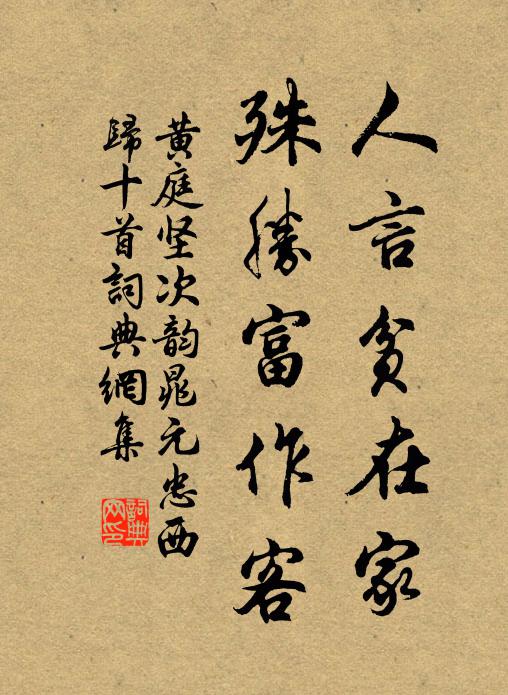 人言贫在家
殊勝富作客
黄庭坚次韵晁元忠西
歸十首詞典網集
詞典
网印